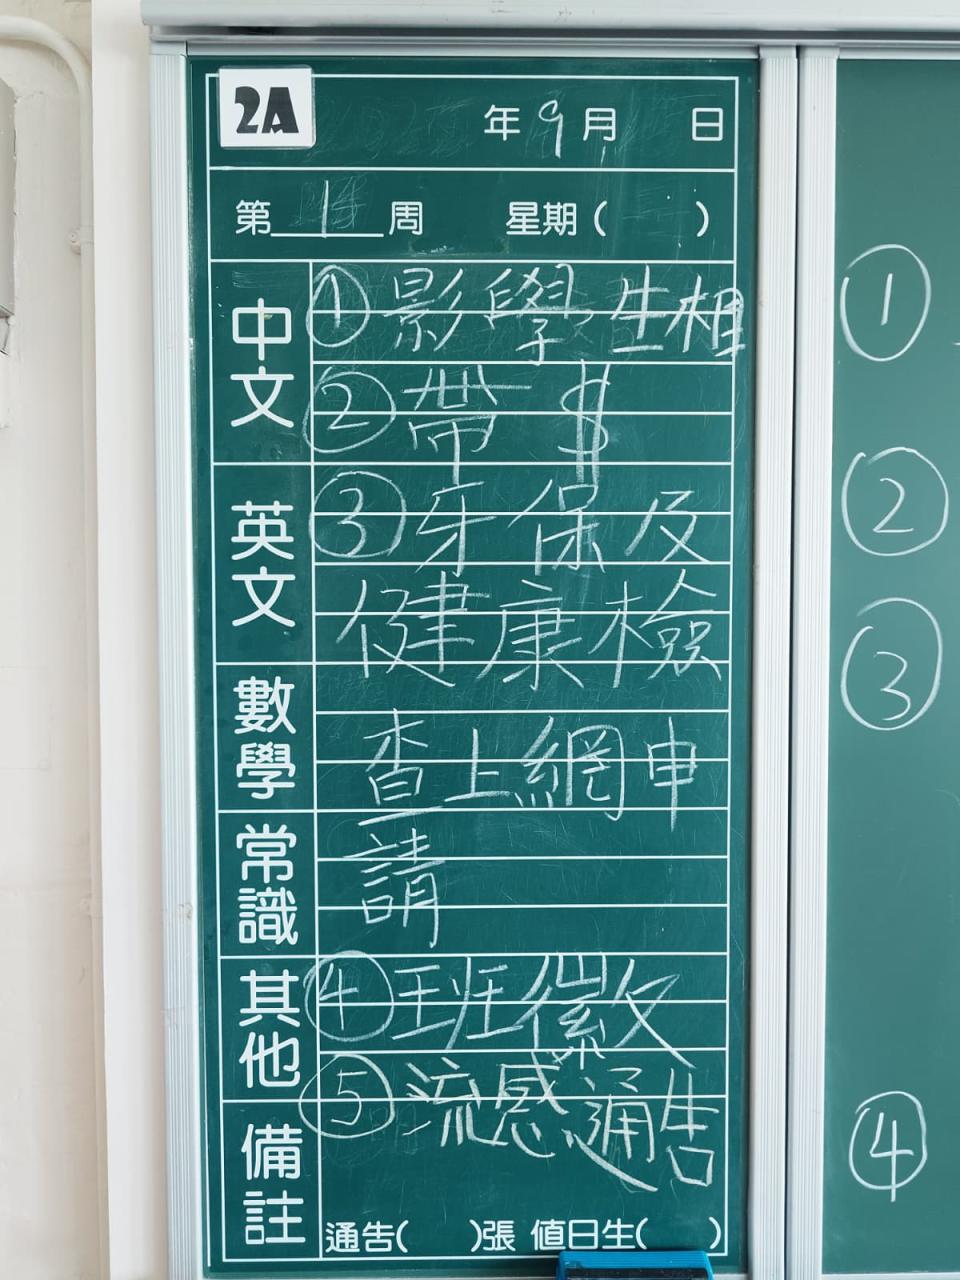 2A
年9月 日
第1周 星期( )
中文
①影學生相
②帶$
英文
③牙保及
健康檢
數學
查上網申
常識
請
其他
④班徽
⑤流感通告
備註
通告( )張 值日生( )
①
②
③
④